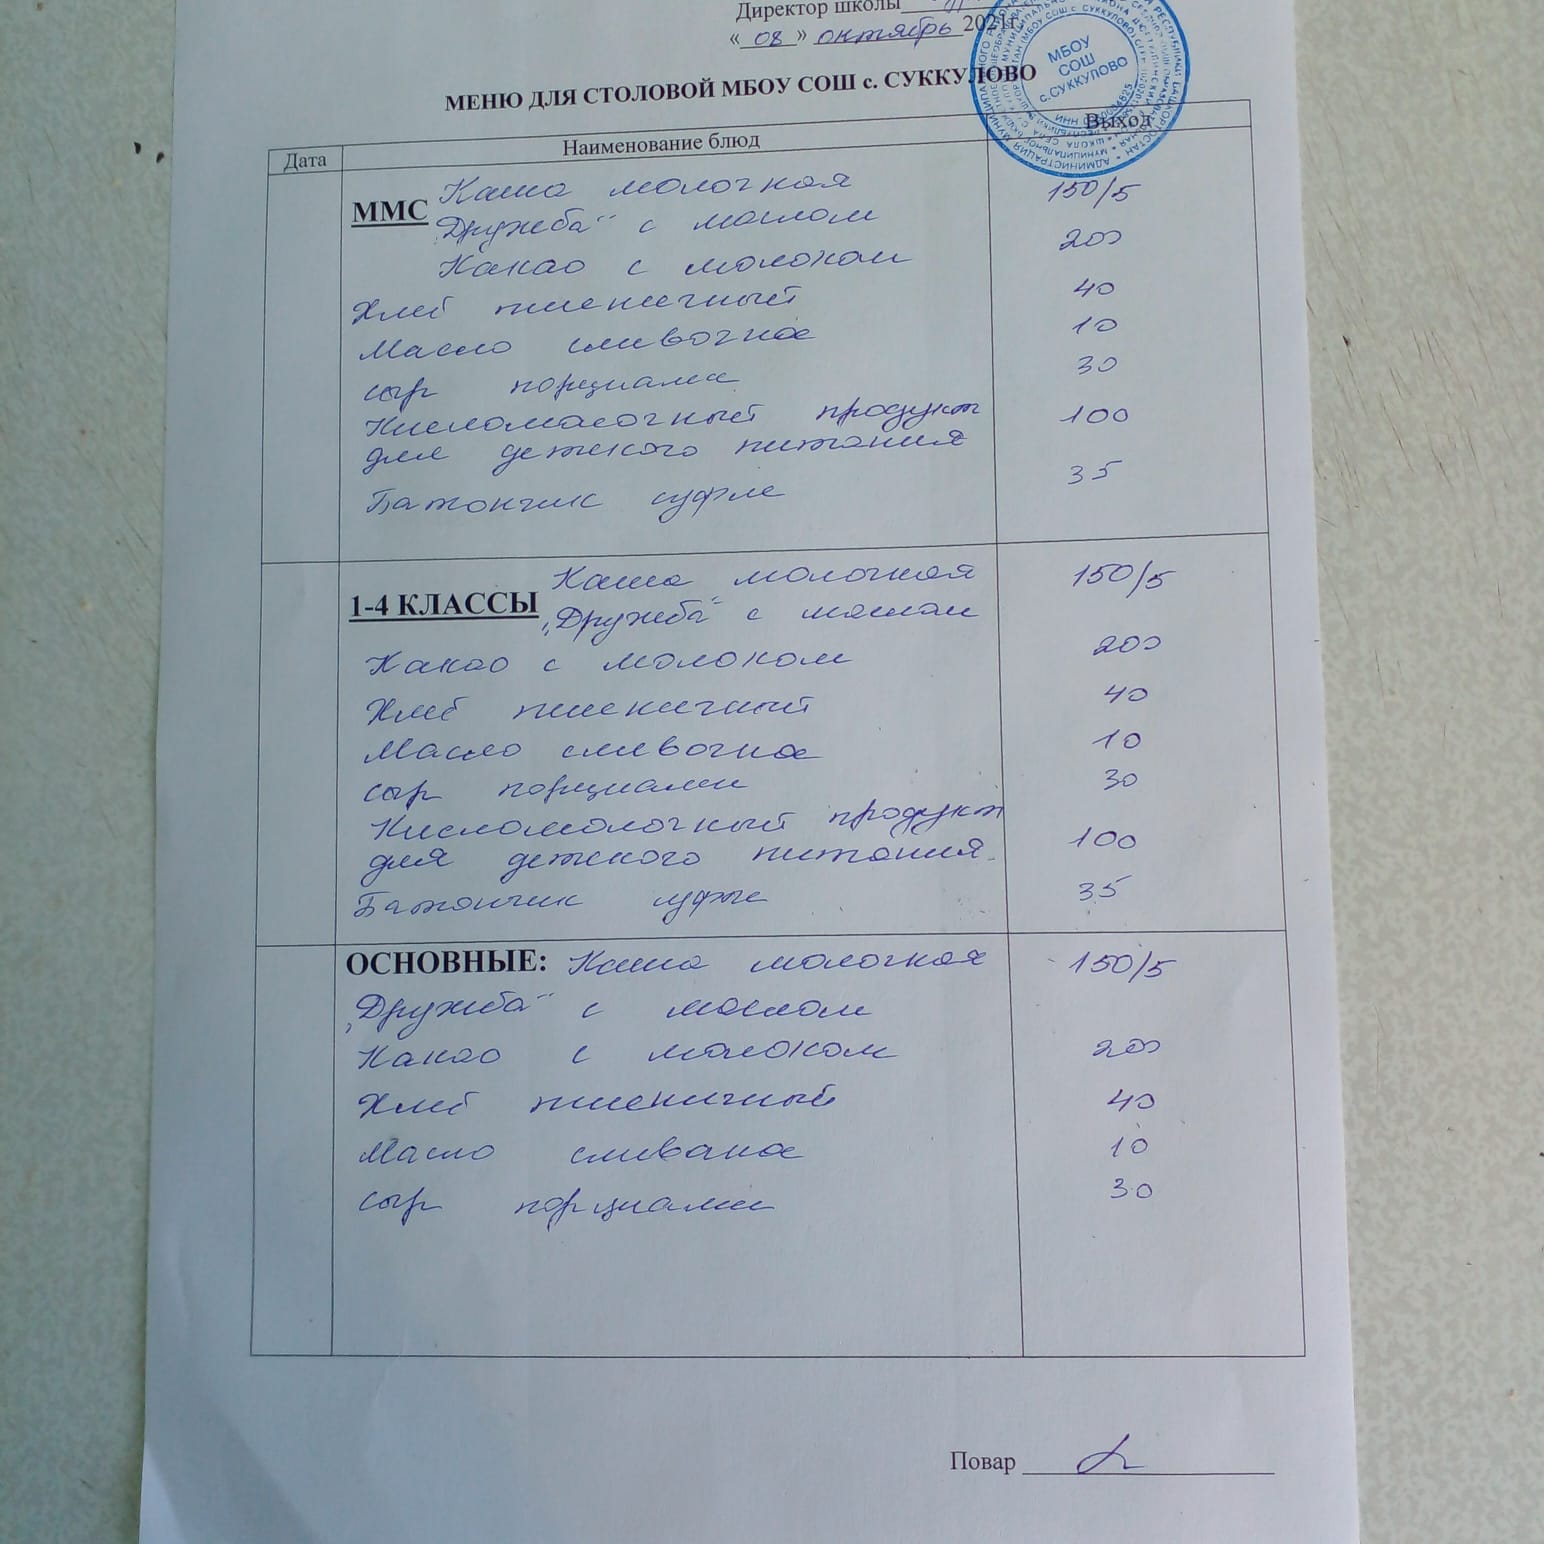 Директор школы
« 08 » октябрь 2021г.
МЕНЮ ДЛЯ СТОЛОВОЙ МБОУ СОШ с. СУККУЛОВО
МБОУ
СОШ
с.СУККУЛОВО
Дата Наименование блюд Выход
ММС Каша молочная 150/5
„Дружба“ с маслом
Какао с молоком 200
Хлеб пшеничный 40
Масло сливочное 10
сыр порциями 30
Кисломолочный продукт 100
для детского питания
Батончик суфле 35
1-4 КЛАССЫ Каша молочная 150/5
„Дружба“ с маслом
Какао с молоком 200
Хлеб пшеничный 40
Масло сливочное 10
сыр порциями 30
Кисломолочный продукт
для детского питания 100
Батончик суфле 35
ОСНОВНЫЕ: Каша молочная 150/5
„Дружба“ с маслом
Какао с молоком 200
Хлеб пшеничный 40
Масло сливочное 10
сыр порциями 30
Повар